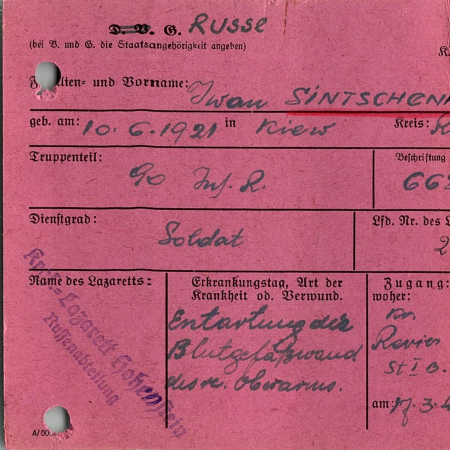 D. V. G. RUSSE
(bei V. und G. die Staatsangehörigkeit angeben)
Familien- und Vorname: Iwan SINTSCHEN
geb. am: 10.6.1921 in Kiew Kreis:
Truppenteil: Beschriftung
90 Inf. R. 66
Dienstgrad: Lfd. Nr. des L
Soldat 2
Name des Lazaretts: Erkrankungstag, Art der Krankheit od. Verwund. Zugang:
woher:
Krgf.-Lazarett Hohenstein
Russenabteilung
Entartung der
Blutgefäßwand
des re. Oberarms.
Kr.
Revier
St I B.
am: 17.3.4
A/00